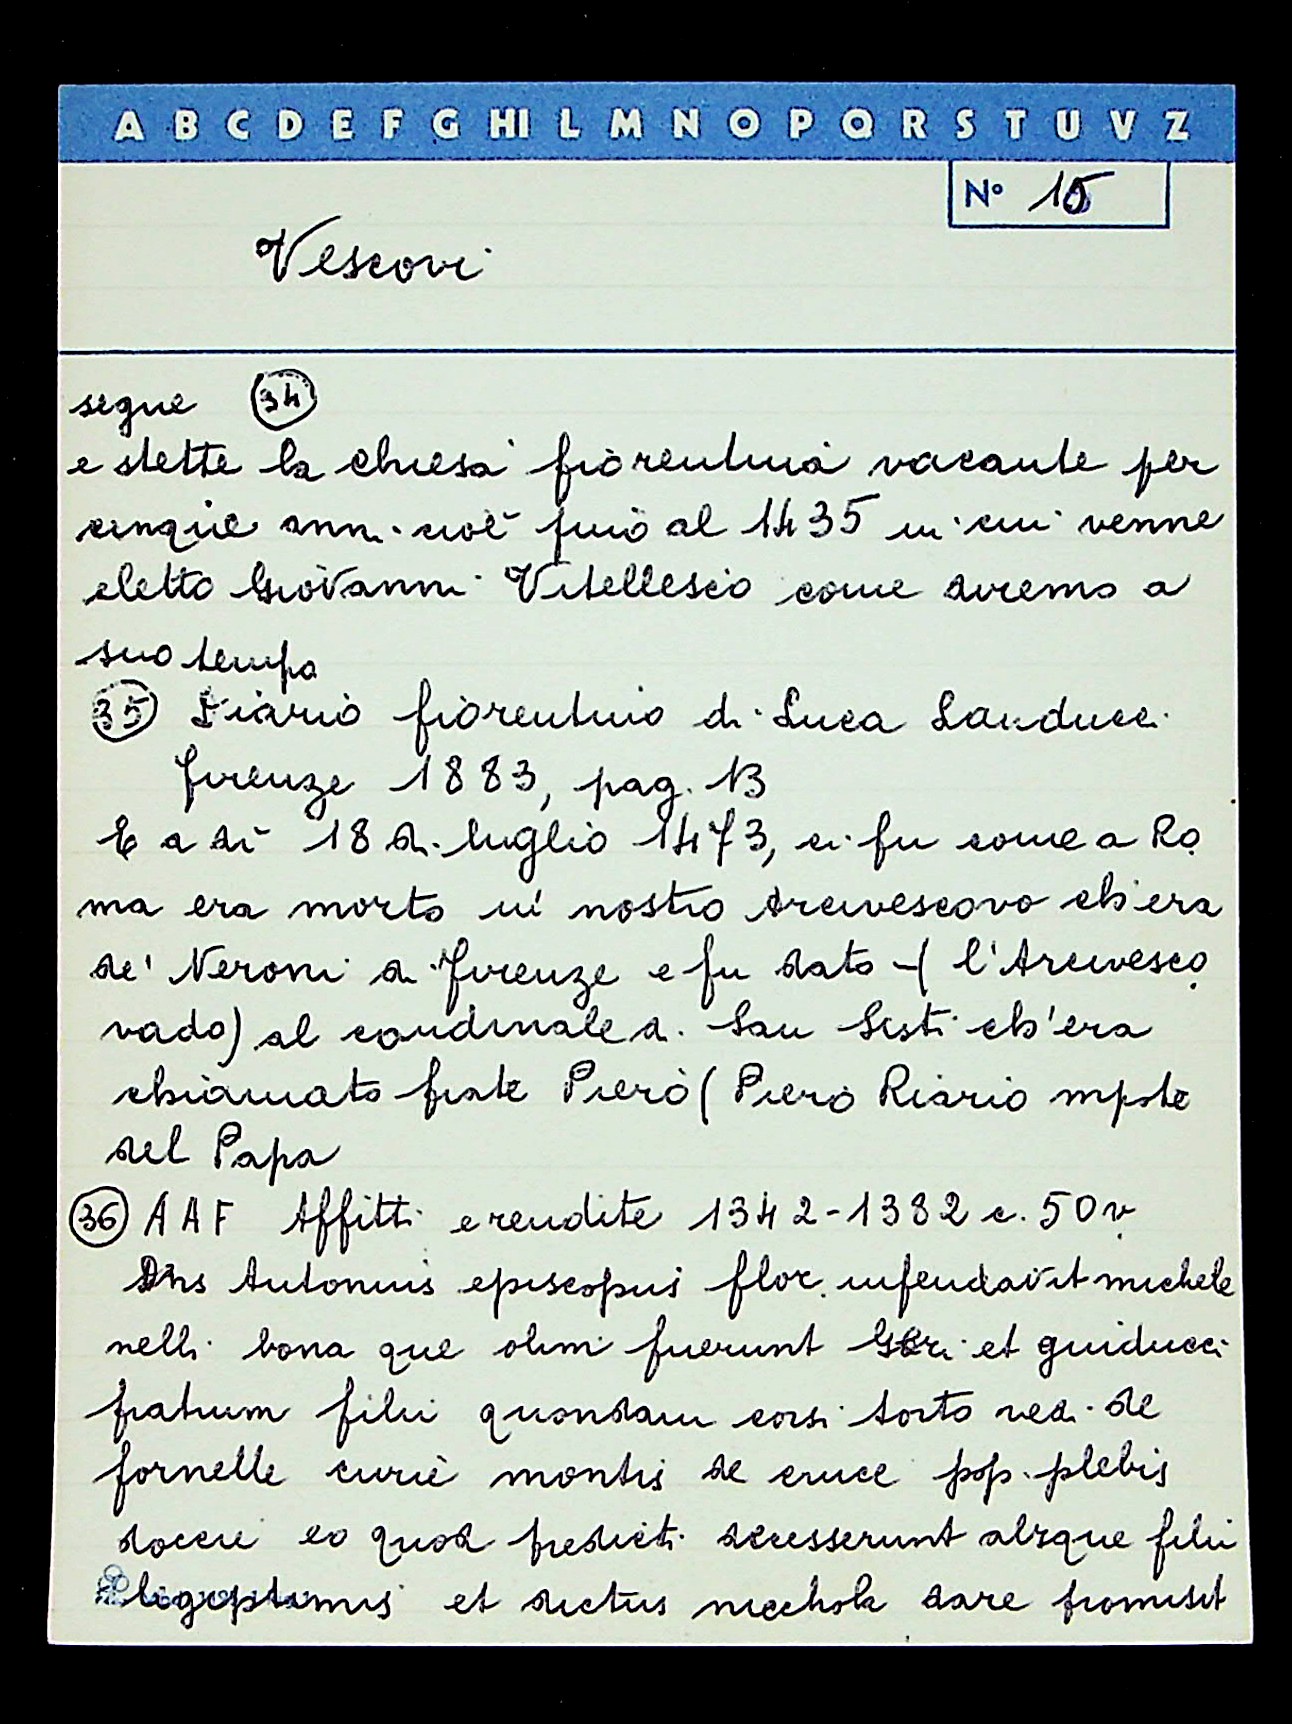 A B C D E F G HI L M N O P Q R S T U V Z
N° 15
Vescovi
segue 34
e stette la chiesa fiorentina vacante per
cinque anni cioè fino al 1435 in cui venne
eletto Giovanni Vitellesco come diremo a
suo tempo
35 Diario fiorentino di Luca Landucci
Firenze 1883, pag. 13
E a dì 18 di luglio 1473, ci fu come a Ro
ma era morto il nostro Arcivescovo ch'era
de' Neroni di Firenze e fu dato - ( l'Arcivesco
vado) al cardinale di San Sisti ch'era
chiamato frate Piero ( Piero Riario nipote
del Papa
36 A A F Affitti e rendite 1342-1382 c. 50 v
Dns Antonius episcopus flor. infeudavit michele
nelli bona que olim fuerunt Geri et guiducci
fratrum filii quondam corsi torto ned. de
fornelle curie montis de cruce pop. plebis
doccie eo quod predicti decesserunt absque filii
legeptimis et dictus mechola dare promisit